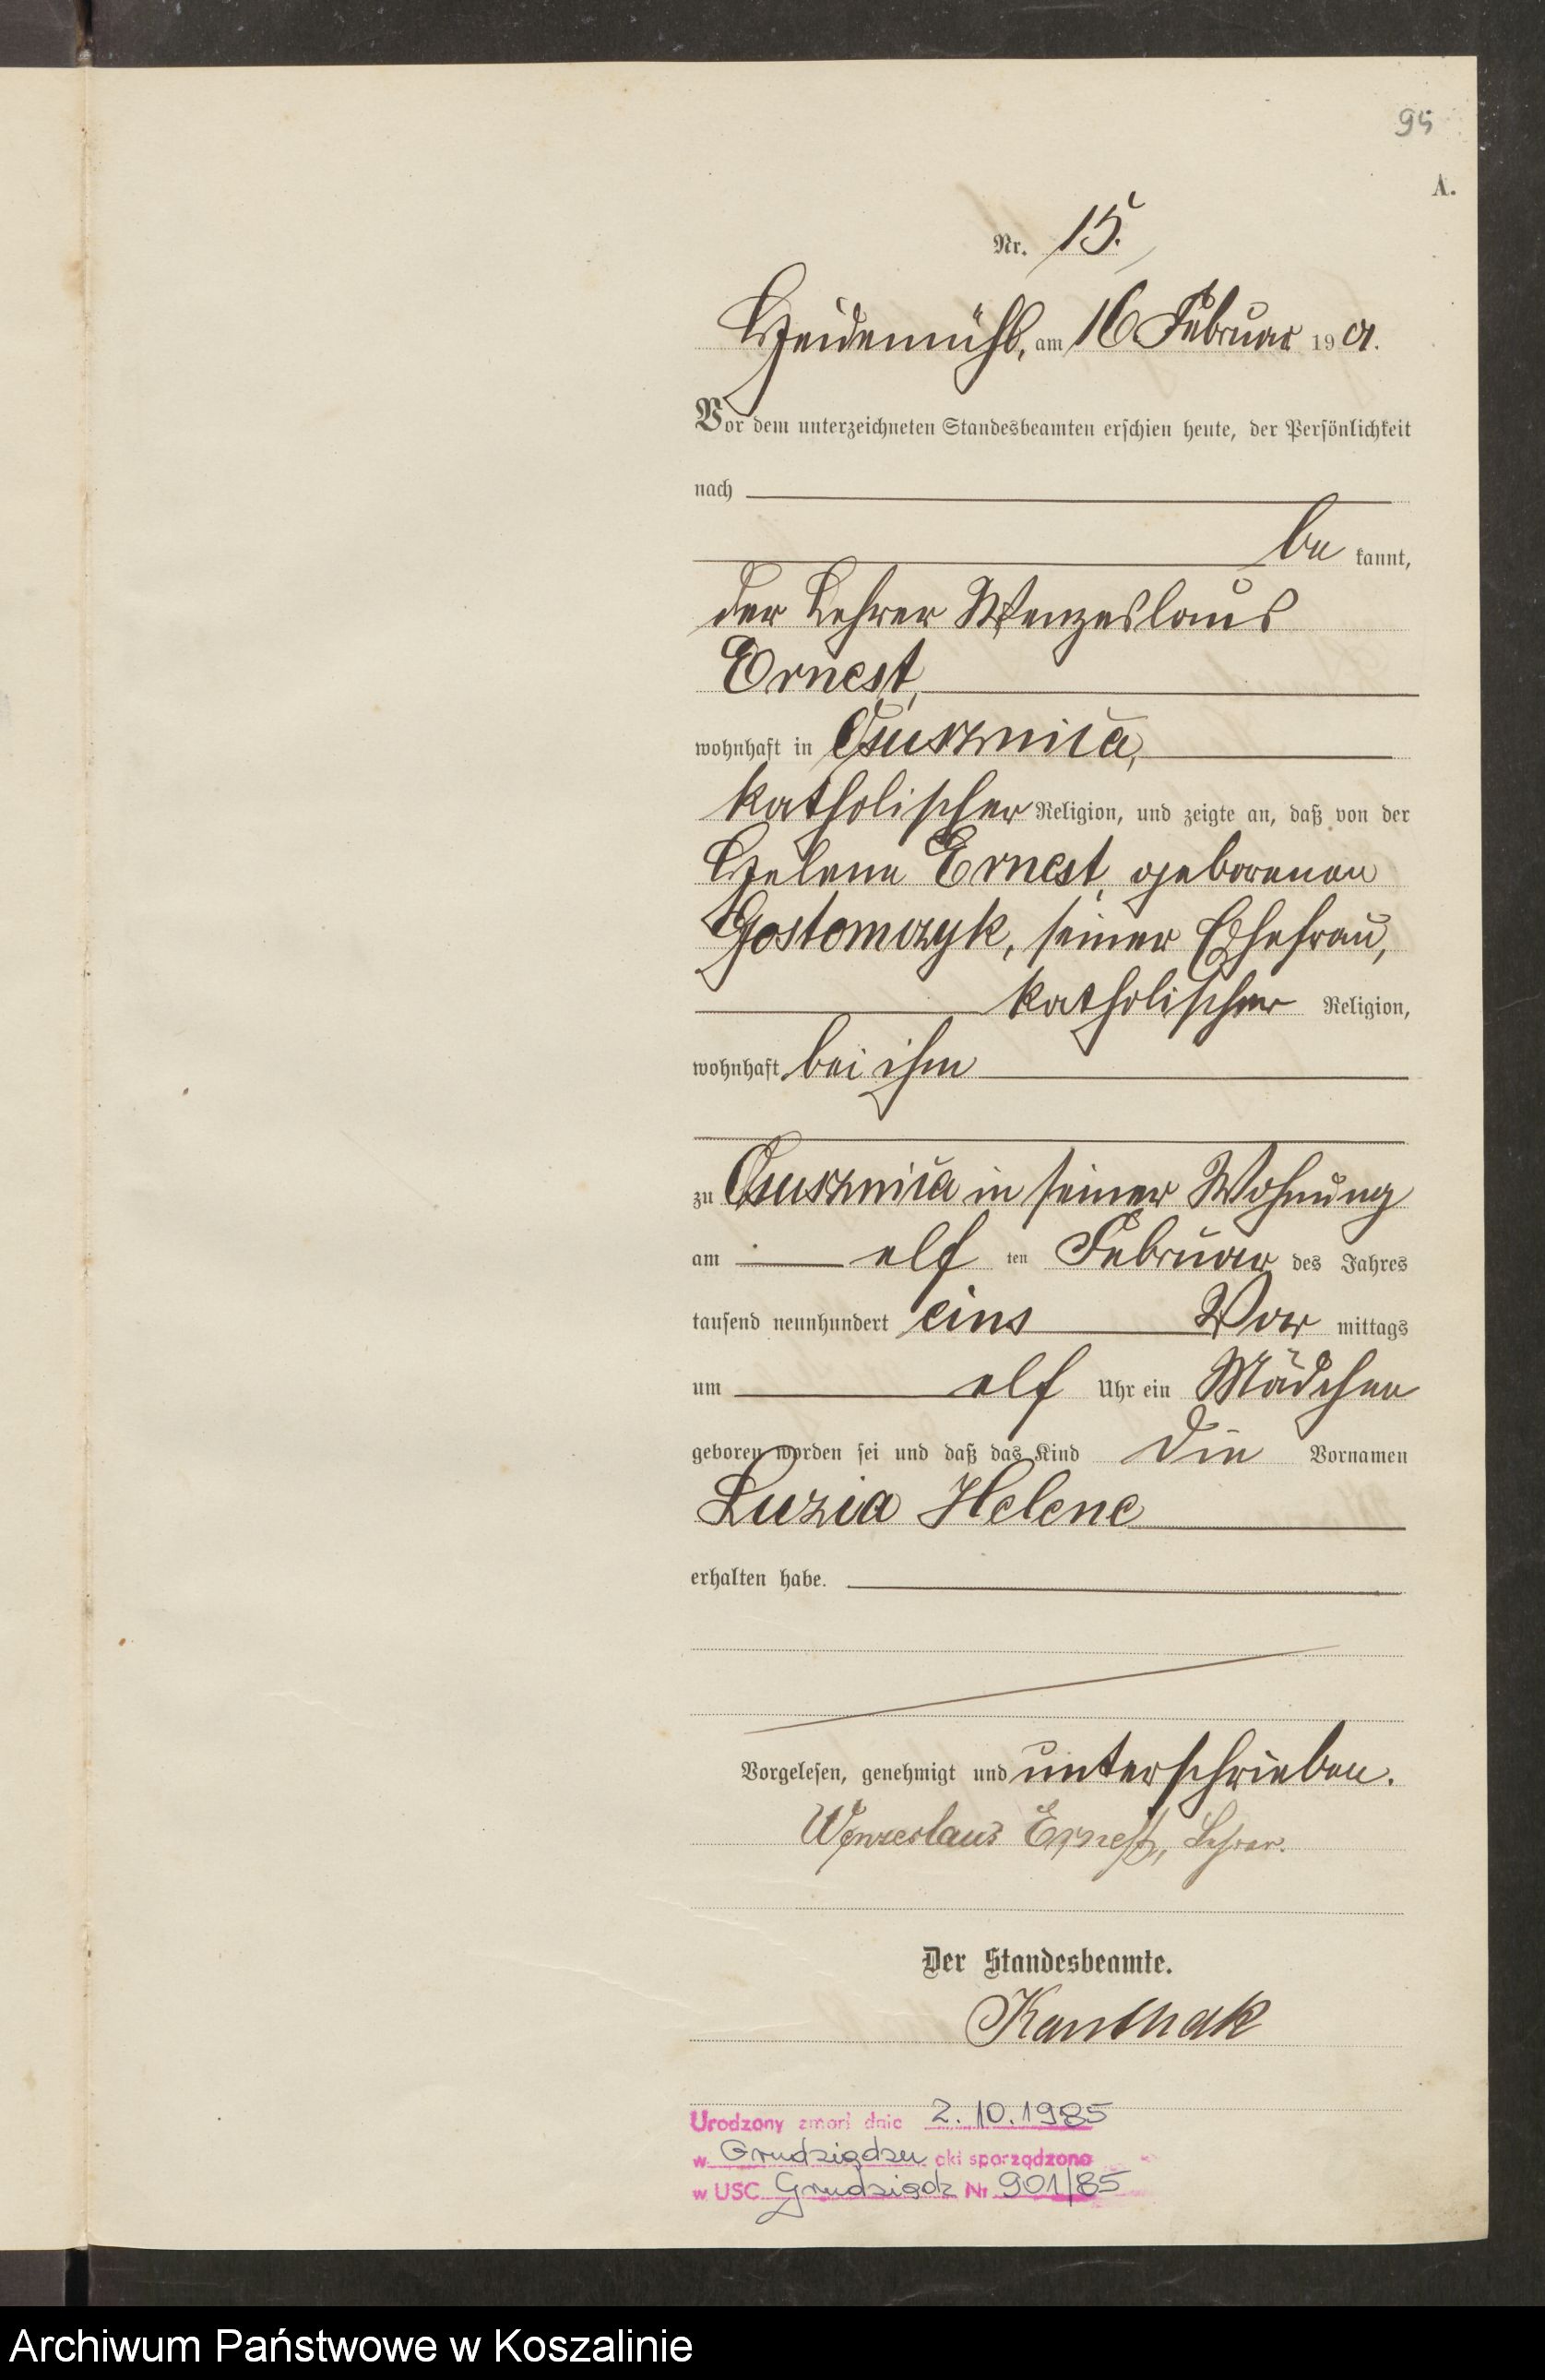 95
A.
Nr. 15.
Heidemühl, am 16. Februar 1901.
Vor dem unterzeichneten Standesbeamten erschien heute, der Persönlichkeit
nach
be kannt,
der Lehrer Wenzeslaus
Ernest,
wohnhaft in
katholischer Religion, und zeigte an, daß von der
Helene Ernest, geborenen
Gostomczyk, seiner Ehefrau,
katholischer Religion,
wohnhaft bei ihm
zu in seiner Wohnung
am elf ten Februar des Jahres
tausend neunhundert eins Vor mittags
um elf Uhr ein Mädchen
geboren worden sei und daß das Kind die Vornamen
Luzia Helene
erhalten habe.
Vorgelesen, genehmigt und unterschrieben.
Wenzeslaus Ernest, Lehrer.
Der Standesbeamte.
Kanthak
Urodzony zmarł dnia 2.10.1985
w Grudziądzu akt sporządzono
w USC Grudziądz Nr 901/85
Archiwum Państwowe w Koszalinie